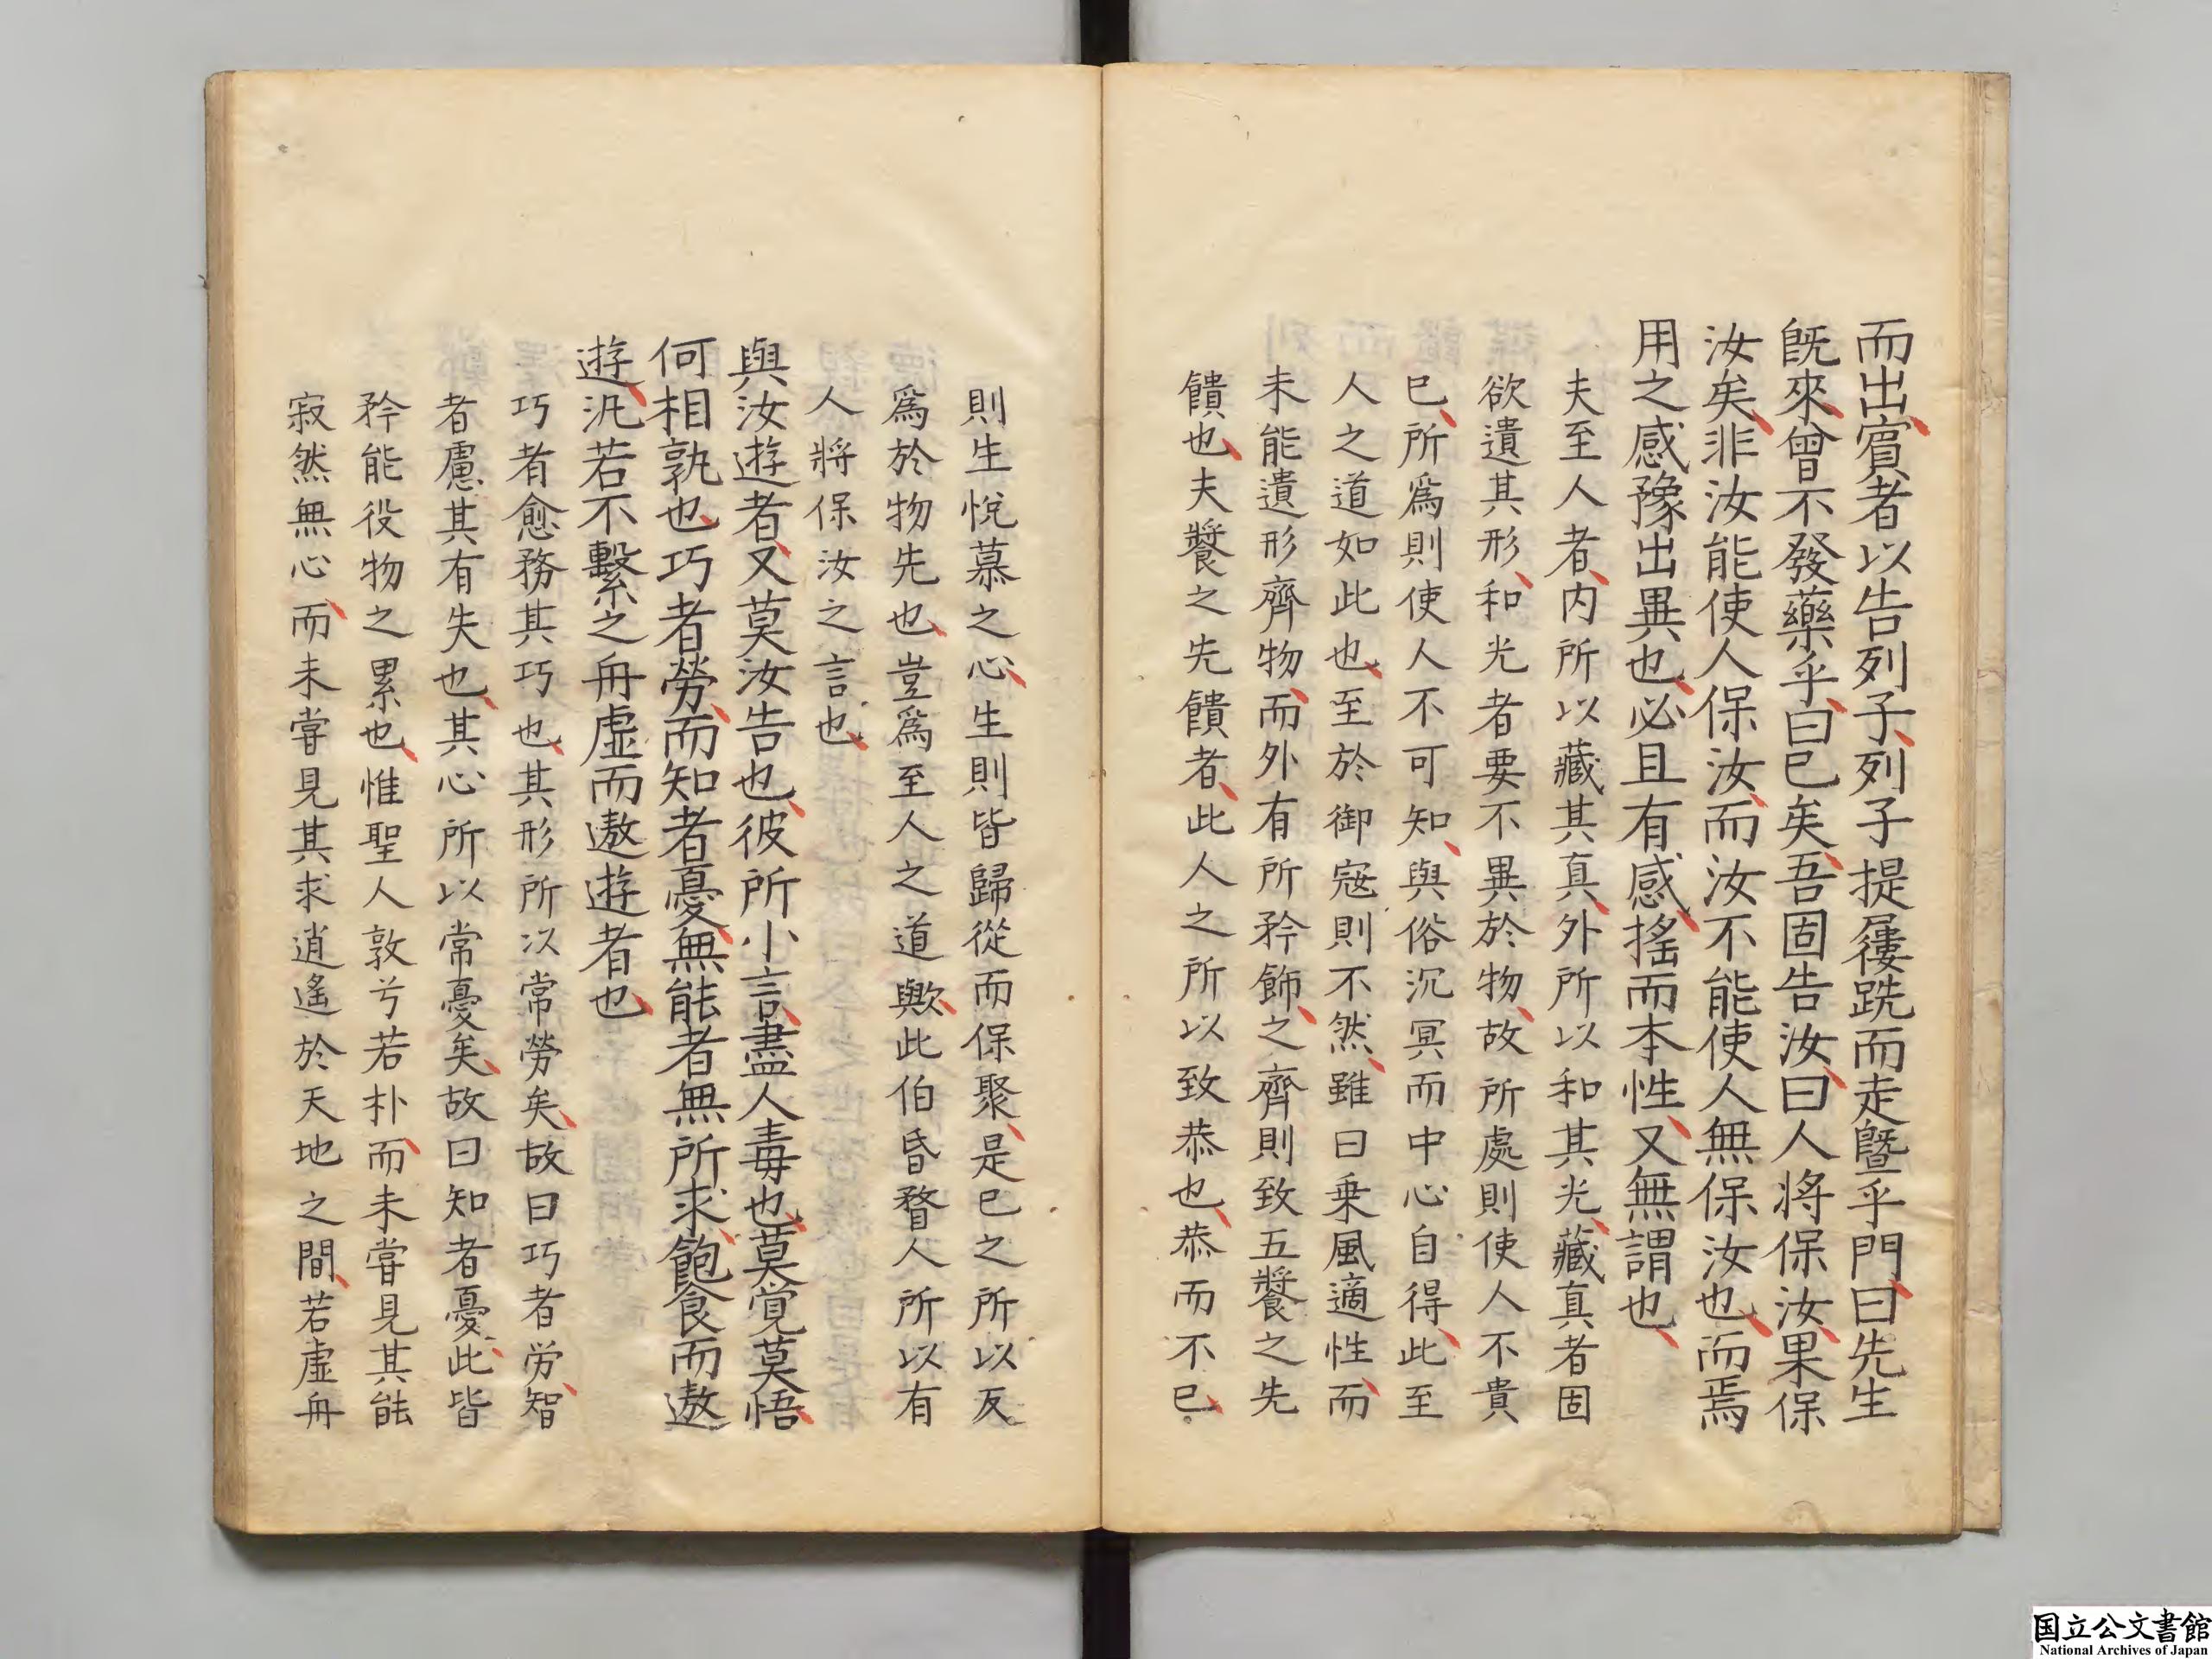 而出賔者以告列子列子提屨跣而走曁乎門曰先生
旣來曾不發藥乎曰已矣吾固告汝曰人將保汝果保
汝矣非汝能使人保汝而汝不能使人無保汝也而焉
用之感豫出異也必且有感搖而本性又無謂也
夫至人者内所以藏其真外所以和其光藏真者固
欲遺其形和光者要不異於物故所處則使人不貴
已所爲則使人不可知與俗沉冥而中心自得此至
人之道如此也至於御寇則不然雖曰乗風適性而
未能遺形齊物而外有所矜飾之齊則致五饗之先
饋也夫饗之先饋者此人之所以致恭也恭而不已
則生悅慕之心生則皆歸從而保聚是已之所以反
爲於物先也豈爲至人之道歟此伯昏瞀人所以有
人將保汝之言也
與汝遊者又莫汝告也彼所小言盡人毒也莫覚莫悟
何相孰也巧者勞而知者憂無能者無所求飽食而遨
遊汎若不繫之舟虛而遨遊者也
巧者愈務其巧也其形所以常勞矣故曰巧者労智
者慮其有失也其心所以常憂矣故曰知者憂此皆
矜能役物之累也惟聖人敦兮若朴而未甞見其能
寂然無心而未甞見其求逍遙於天地之間若虛舟
国立公文書館
National Archives of Japan